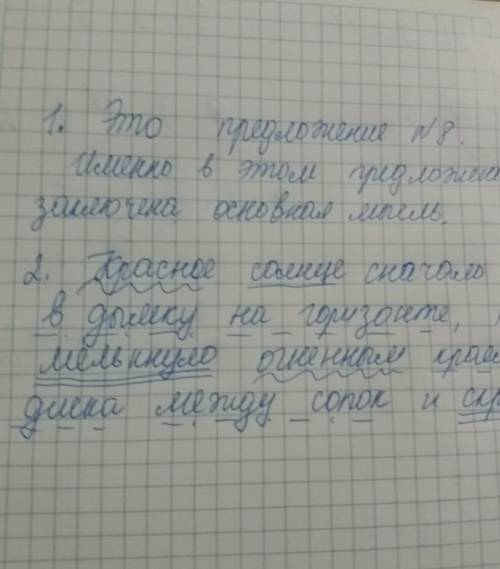 1. Это предложение №8.
Именно в этом предложен
заключена основная мысль.
2. Красное солнце сначало
в дымку на горизонте,
мелькнуло огненным крае
диска между сопок и скр